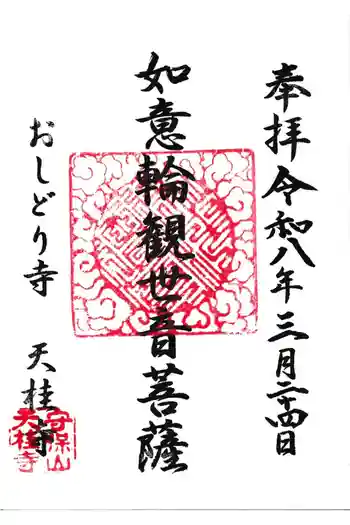 奉拝令和八年三月二十四日
如意輪観世音菩薩
おしどり寺 天桂寺
守保山
天桂寺